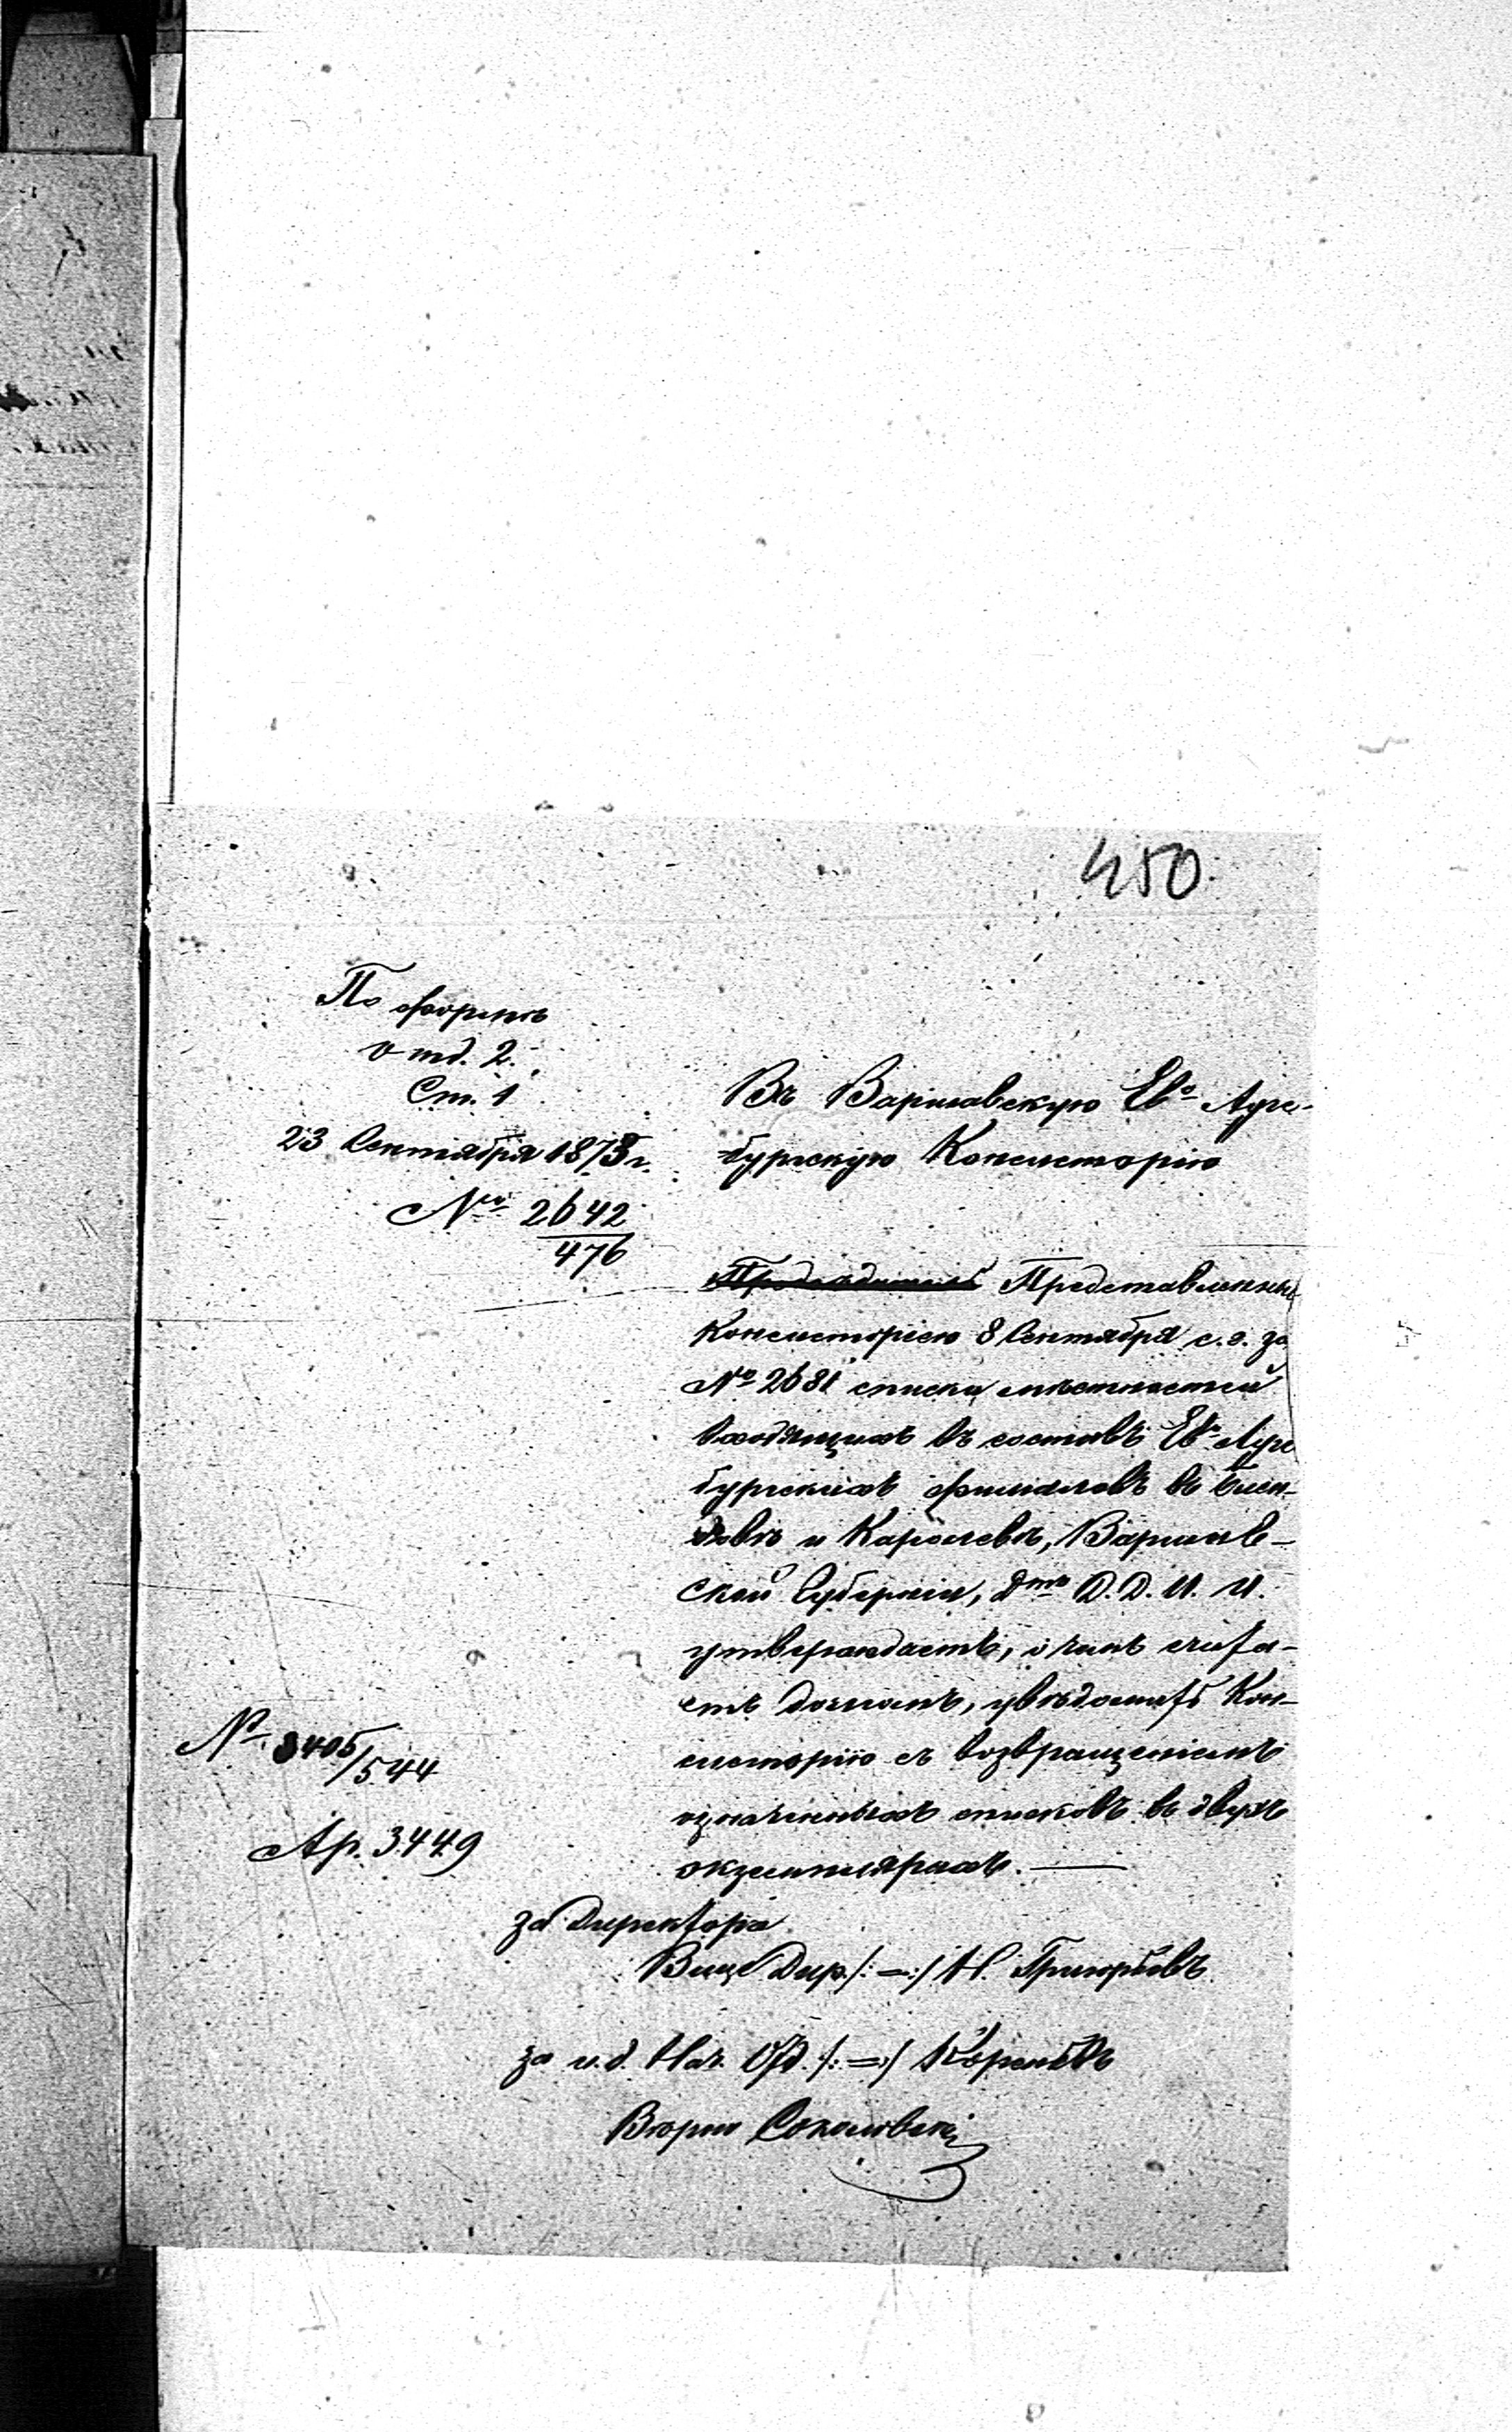 450.
По формѣ
отд. 2.
Ст. 1
23 Сентября 1873 г.
№ 2642
476
Въ Варшавскую Ево Аугс-
бургскую Консисторію
Представленные
Консисторіею 8 Сентября с. г. за
№ 2631 списки мѣстностей
входящихъ въ составъ Ев. Аугс
бургскихъ филіаловъ въ
и Каролевѣ, Варшав-
ской Губерніи, Дтъ Д. Д. И. И.
утверждаетъ, о чемъ счита-
етъ долгомъ, увѣдомить Кон-
систорію съ возвращеніемъ
означенныхъ списковъ въ двухъ
экземплярахъ. —
№ 3405/544
Ар. 3449
за Директора
Вице Дир. /: — :/ Н. Григорьевъ
за и. д. Нач. Отд. /: = :/
Вѣрно Соколовскій